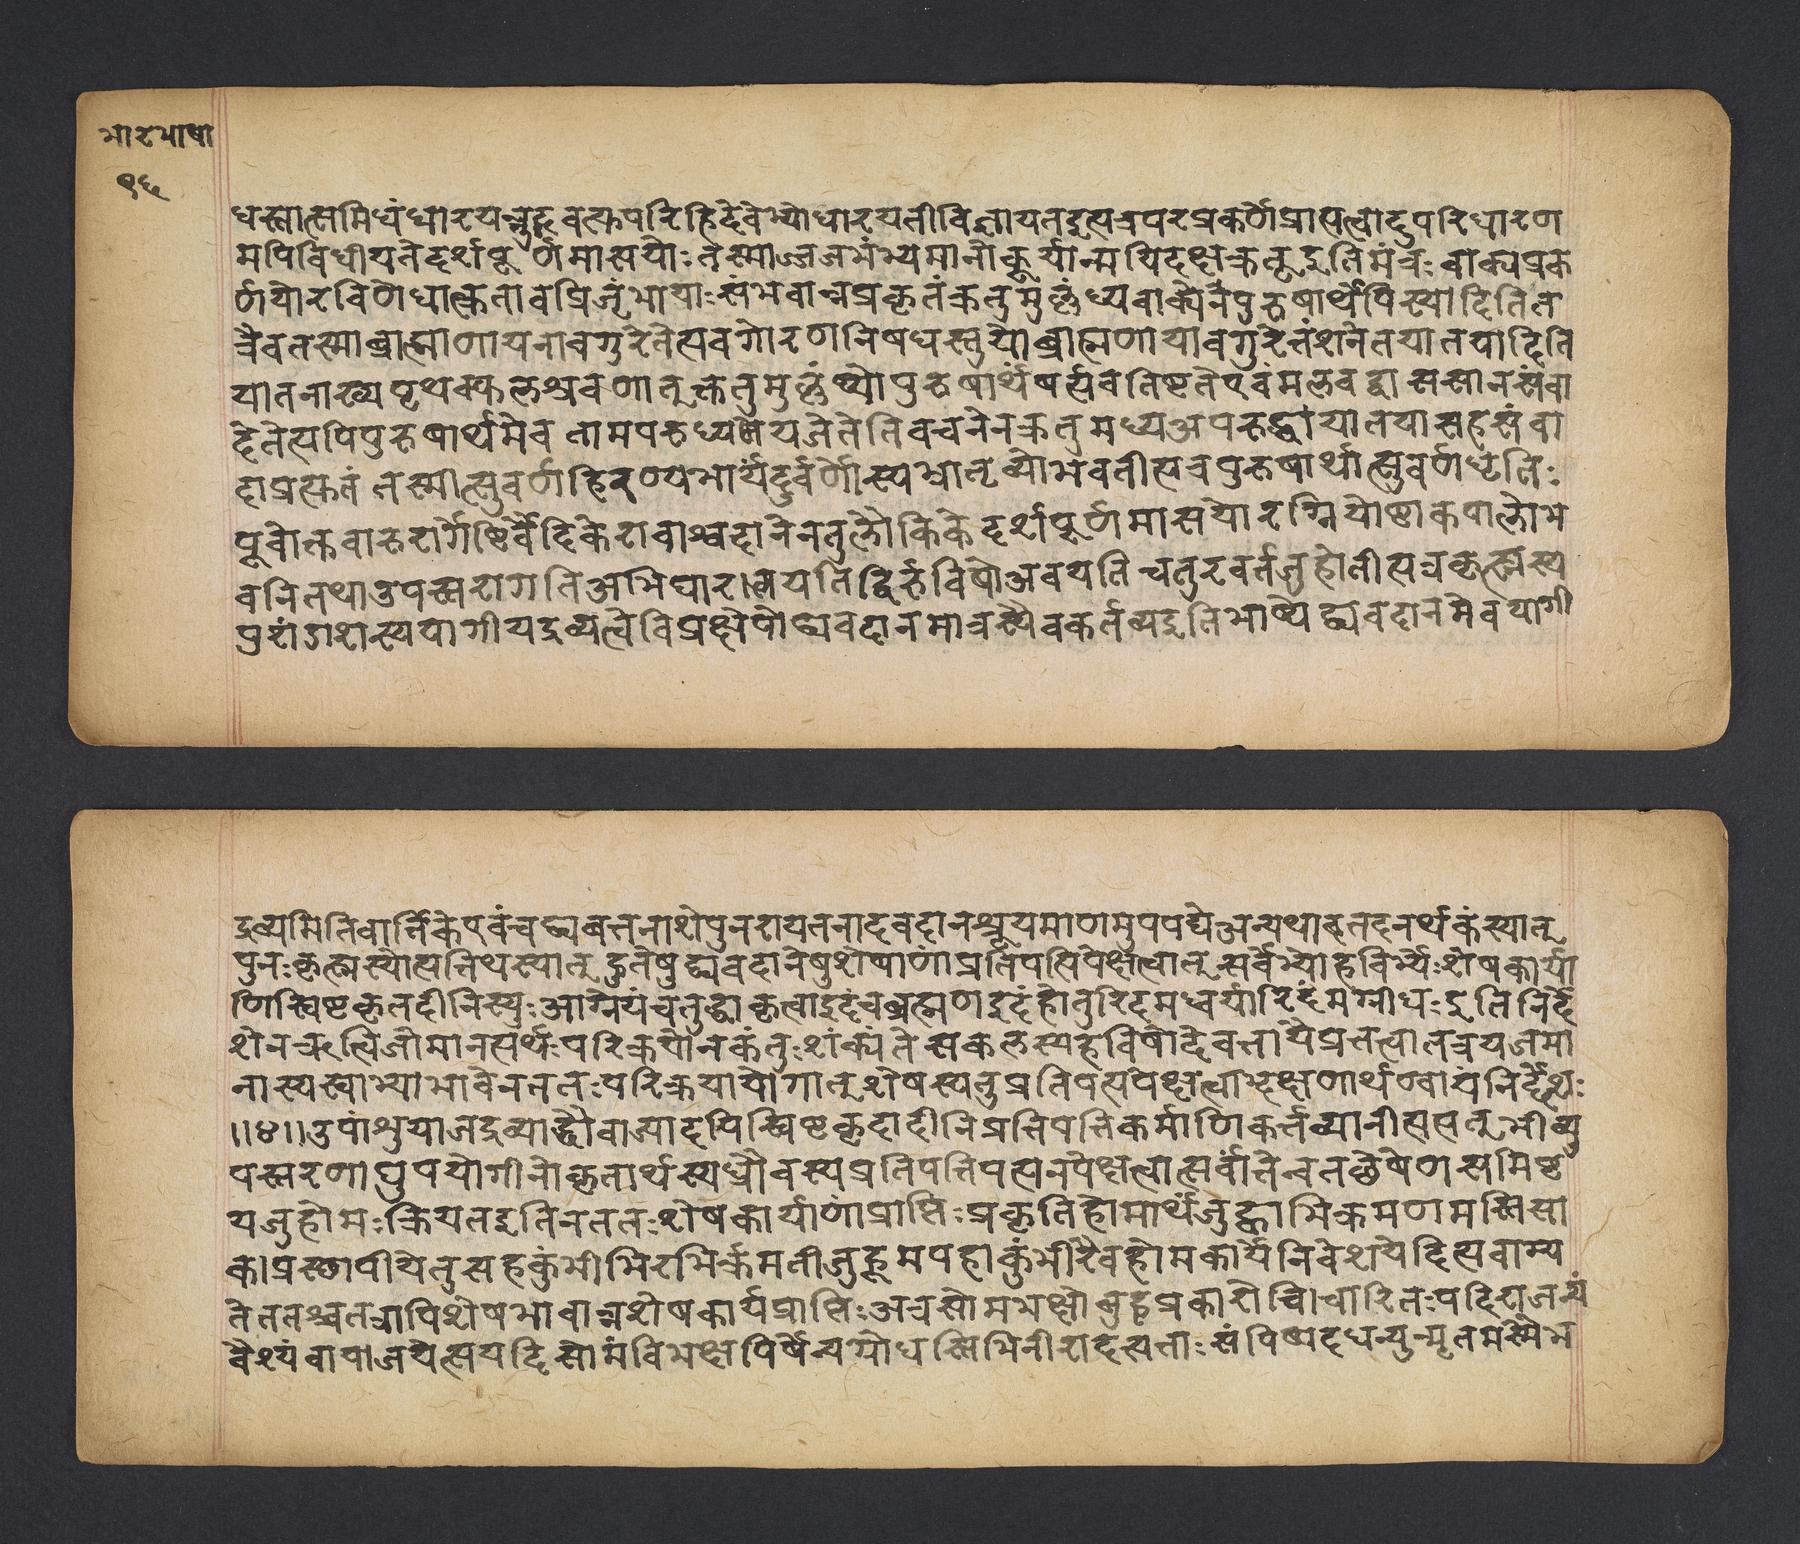 भाटभाषा
१६
धस्तात्समिधंधारयन्नुद्रवत्स्त्रपरिहिदेवेभ्योधारयतीविज्ञायतइत्यत्रपरप्रकर्णेप्रासत्वोदुपरिधारण
मपिविधीयतेदर्शपूर्णमासयोः तस्माज्जजभंभ्यमानोब्रूर्यान्मयिदक्षक्रतूइतिमंत्रः वाक्यप्रक
र्णयोरविणेधात्क्रतावप्रिजृंभायाः संभवान्नप्रकृतंक्रतुमुक्तंध्यवाक्येनेपुरुषार्थेपिस्यादितित
त्रैवतस्माब्राह्माणायनावगुरेतेत्यवगोरणनिषधस्तुयोब्राह्मणायावगुरेत्तंशनेतयातयादिति
यातनाख्यपृथक्फलश्रवणातूक्तेतुमुक्तंष्योपुरुषार्थषर्त्यवतिष्टतेएवंमलवद्वासस्रानसंवा
देतेत्यपिपुरुषार्थमेव तामपरुध्ययजेतेतिवचनेनक्रतुमध्यअपरुद्धांयातयासहसंवा
दाप्रत्सक्तं तस्मीत्सुवर्णहिरण्येभार्यंदुर्वर्णोस्यभ्रातृव्योभवतीत्यत्रपुरुषार्थात्सुवर्णधृतिः
पूर्वोक्तवारुरार्गेष्टिर्वैदिकेरावाश्वदानेनतुलौकिके दर्शपूर्णमासयोरग्नियोष्टाकपालोभ
वनितथाउपस्त्ररागतिअभिघारालेयतिद्विर्हविषोअवयति चतुरवर्तजुहोतीत्यत्रकृत्स्नस्य
पुरांगशस्ययागीयद्रव्यत्वेविप्रक्षेपोद्यवदानमात्रस्यैवकर्तव्यइतिभाष्ये द्व्यवदानमेवयागी
द्रव्यमितिवार्त्तिकेएवंचद्व्यबत्तनाशेपुनरायतनादवदानश्रूयमाणमुपपद्येअन्यथावतदनर्थकंस्यातू
पुनःकृत्स्नस्योत्पत्तिथस्यातू द्रुतेषुद्व्यवदानेषुशेषाणांप्रतिपत्तिपेक्षत्वातू सर्वेभ्योहविर्भ्यः शेषकार्या
णिस्विष्टकृतदीनिस्युः आग्नेयंचतुर्द्धाकृत्वाइदंचब्रह्मणइदंहोतुरिदमध्वर्यारिदंमग्नीधः इतिनिर्दे
शेनऋत्विजीमानसर्थःपरिक्रयोनकंतुःशंक्यंते सकलस्यहविषोदेवतायैप्रत्तत्त्वातत्रयजमा
नास्यस्वाभ्याभावेनततः परिक्रयायोगातू शेषस्यतुप्रतिपत्त्यपेक्षत्वाभक्षणार्थण्वायंनिर्देशः
।।४।।उपांशुयाजद्रव्याद्ध्रौवाज्यादपिस्विष्टकृदादीनिप्रतिपत्तिकर्माणिकर्त्तव्यानीत्यसत्तूभीव्यु
पस्तरणाद्युपयोगीनोकृतार्थस्यध्रौवस्यप्रतिपत्तिपत्यनपेक्षत्वात्सर्वातेन्वतछेषेणसमिष्ट
यजुहोमःक्रियतइतिनततःशेषकार्याणांप्राप्तिः प्रकृतिहोमार्थंजुह्वाभिक्रमणमस्तिसा
कंप्रस्थापीयेतुसहकुंभीभिरभिर्क्रमतीजुहूमपहाकुंभीरैवहोमकार्येनिवेशयेदित्यवाम्य
तेततश्चतत्रापिशेषभावान्नशेषकार्यप्राप्तिः अत्रसोमभक्षोबहुप्रकारोविचारितः यदिराजन्यं
वैश्यंवायाजयेत्सयदि सोमंविभक्षयिषेन्यग्रोधस्तिभिनीराहृत्यताः संपिष्यदधन्युन्मृतमस्मैभ